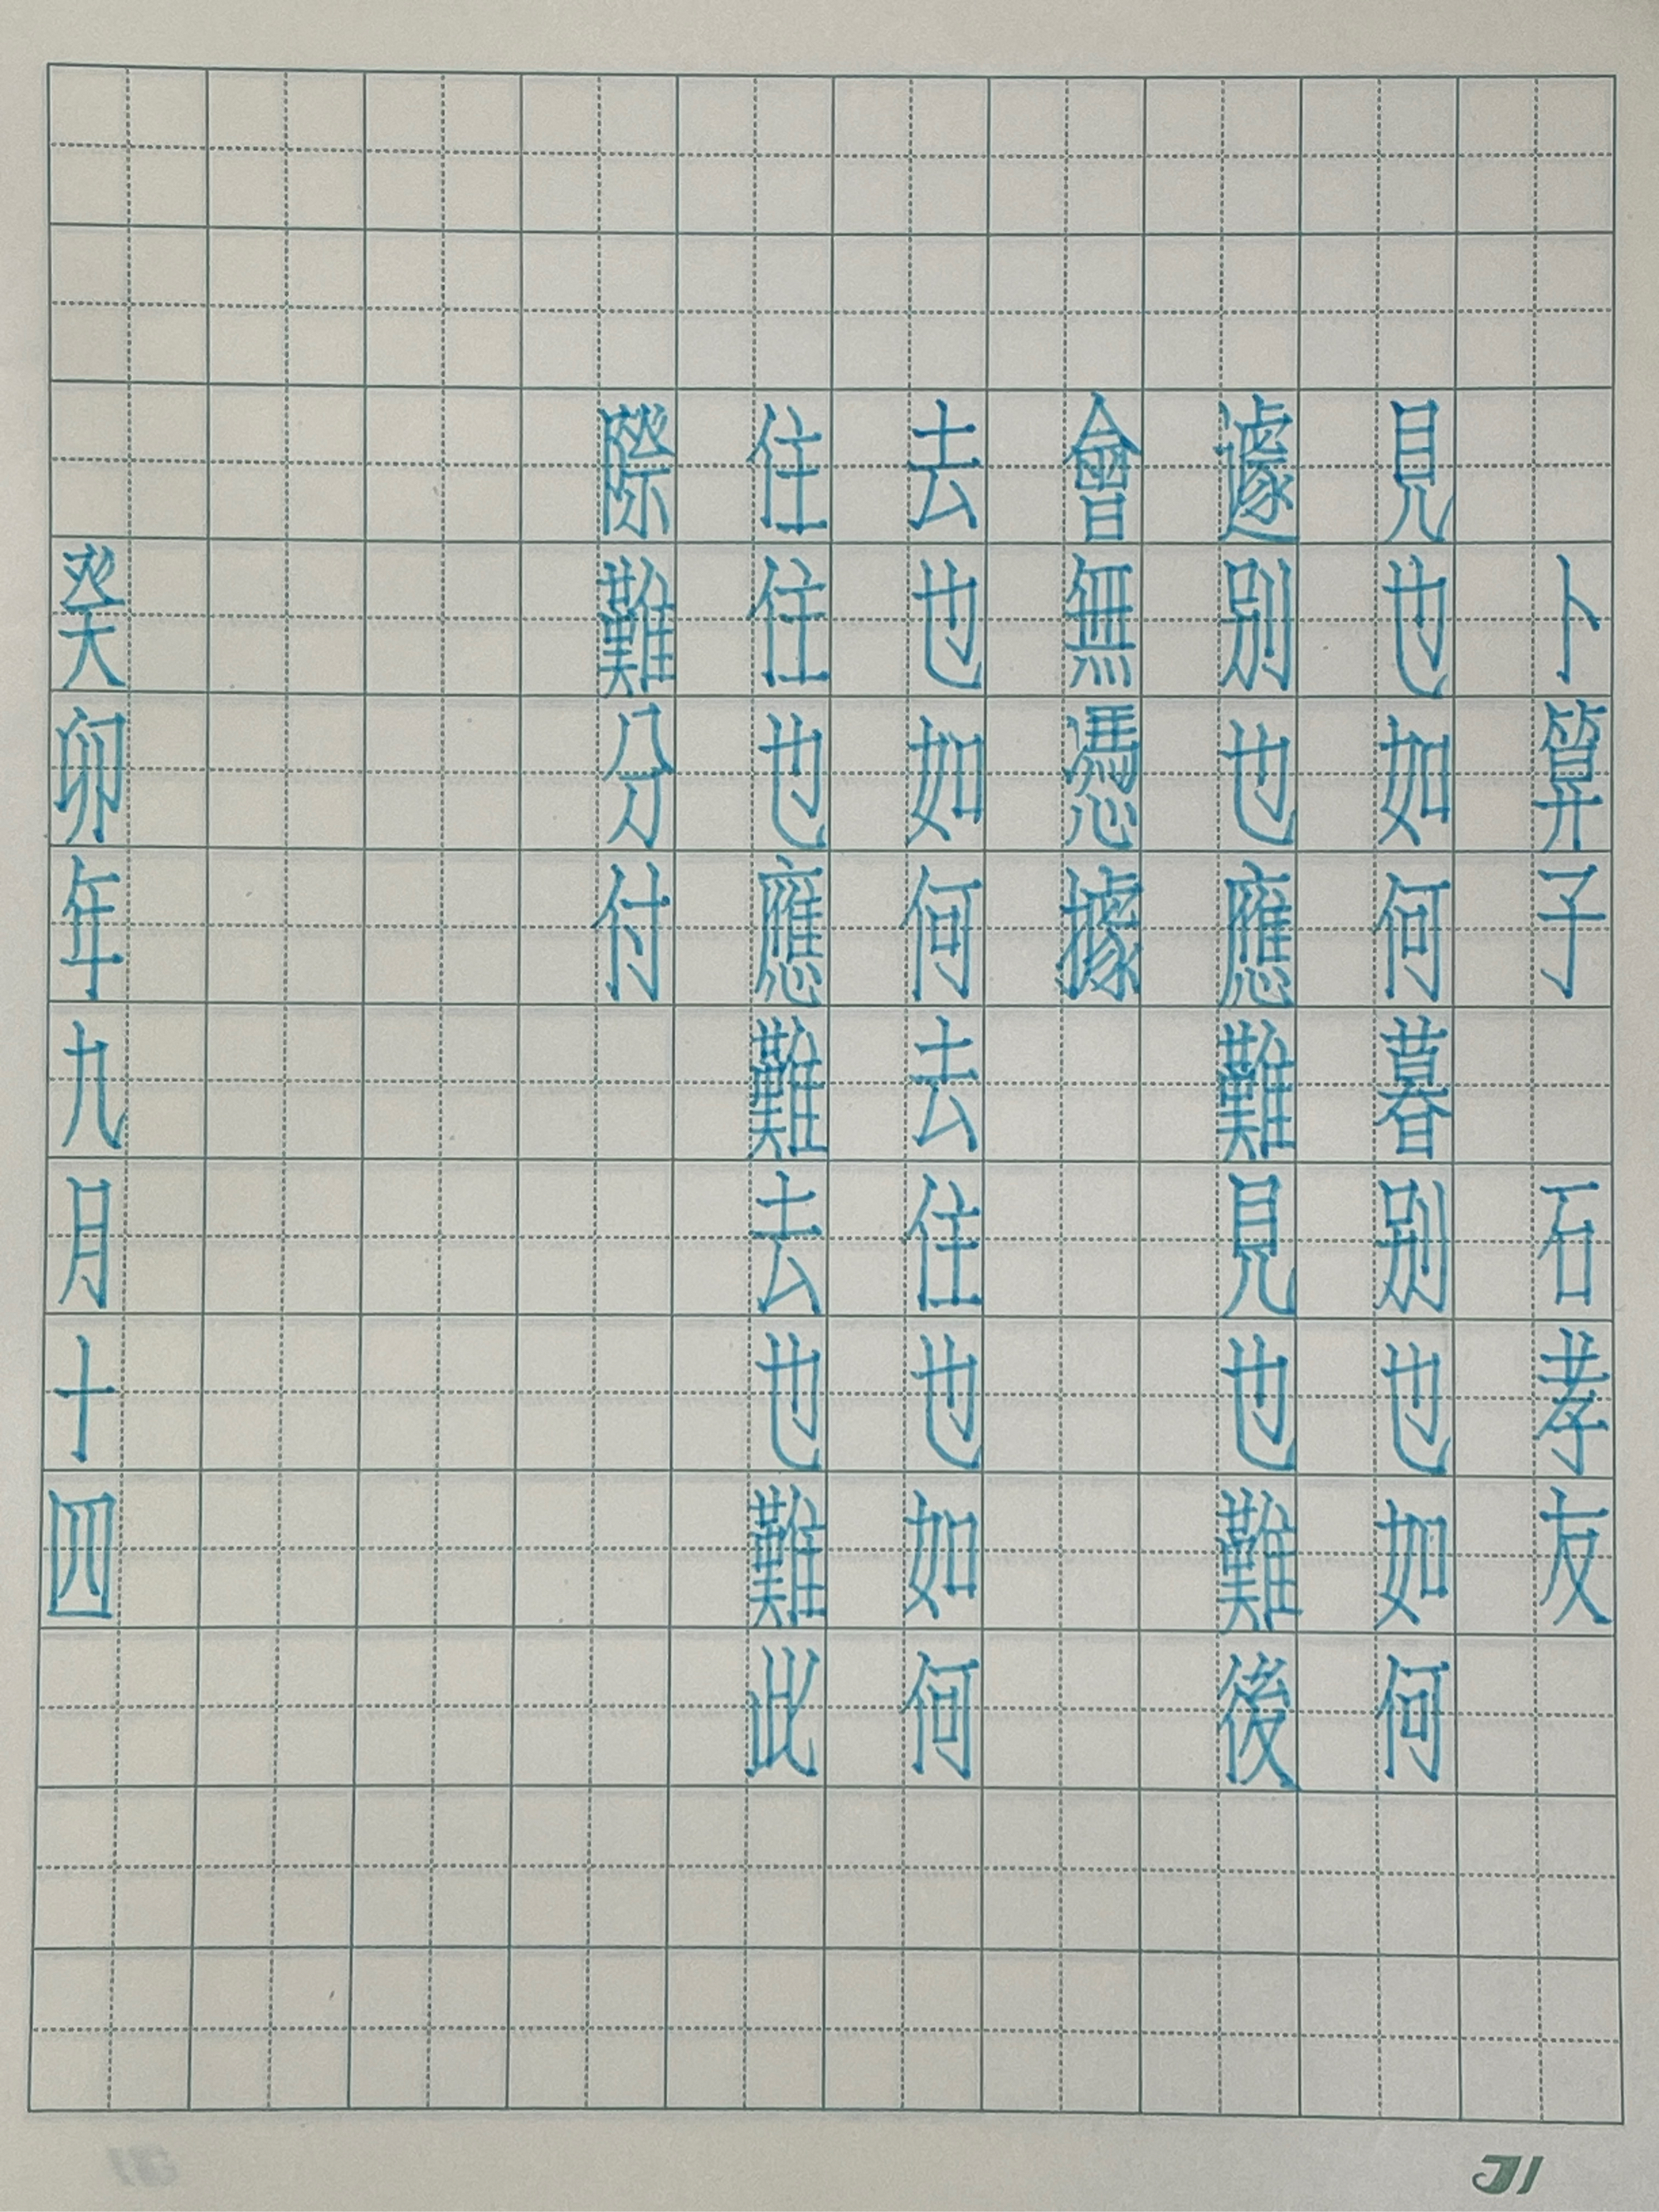 卜算子 石孝友
見也如何暮別也如何
遽別也應難見也難後
會無憑據
去也如何去住也如何
住住也應難去也難此
際難分付
癸卯年九月十四